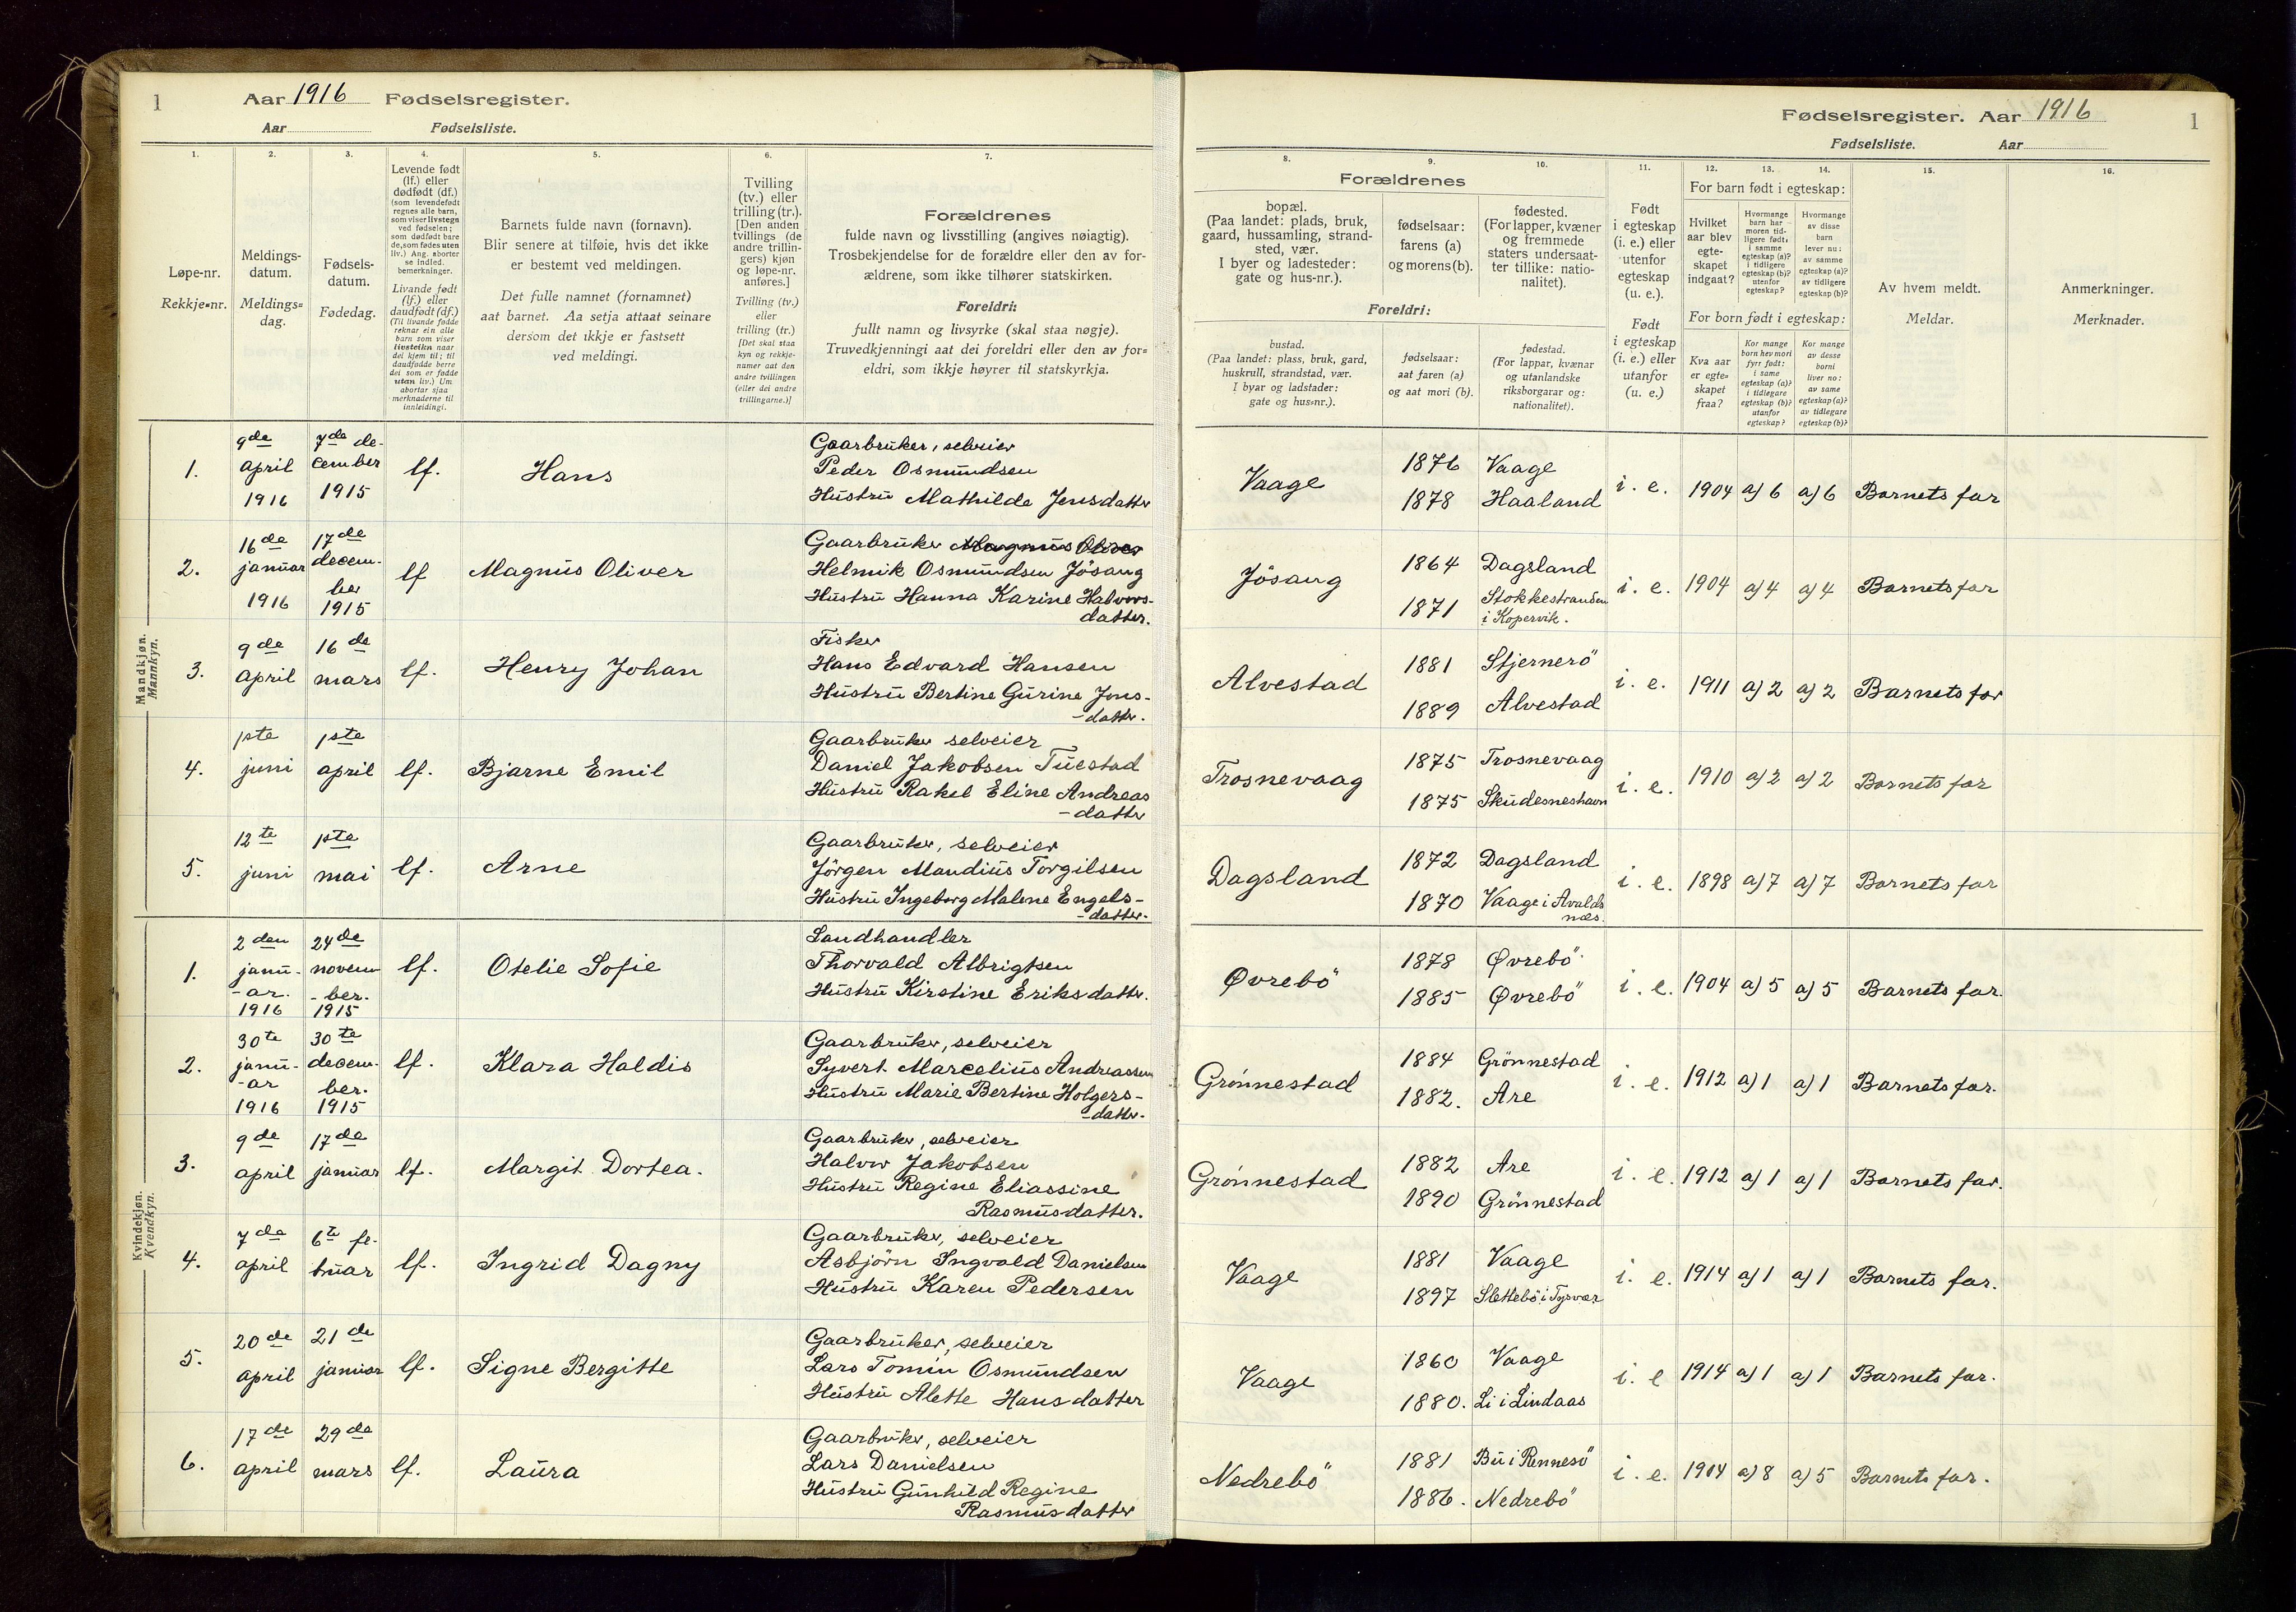 1 Aar 1916 Fødselsregister.
Aar Fødselsliste.
1. 2. 3. 4. 5. 6. 7.
Løpe-nr.
Rekkje=nr.
Meldings-
datum.
Meldings=
dag.
Fødsels-
datum.
Fødedag.
Levende født
(lf.) eller
dødfødt (df.)
(som levendefødt
regnes alle barn,
som viser livstegn
ved fødselen;
som dødfødt bare
de, som fødes uten
liv.) Ang. aborter
se indled.
bemerkninger.
Livande født
(lf.) eller
daudfødt (df.)
(Til livande fødde
reknar ein alle
barn som viser
livsteikn naar
dei kjem til; til
daudfødde berre
dei som er fødde
utan liv.) Um
abortar sjaa
merknaderne til
innleidingi.
Barnets fulde navn (fornavn).
Blir senere at tilføie, hvis det ikke
er bestemt ved meldingen.
Det fulle namnet (fornamnet)
aat barnet. Aa setja attaat seinare
dersom det ikkje er fastsett
ved meldingi.
Tvilling
(tv.) eller
trilling (tr.).
[Den anden
tvillings (de
andre trillin-
gers) kjøn
og løpe-nr.
anføres.]
Tvilling (tv.)
eller
trilling (tr.)
[Det skal staa
kyn og rekkje-
numer aat den
andre tvillingen
(eller dei andre
trillingarne.)]
Forældrenes
fulde navn og livsstilling (angives nøiagtig).
Trosbekjendelse for de forældre eller den av for-
ældrene, som ikke tilhører statskirken.
Foreldri:
fullt namn og livsyrke (skal staa nøgje).
Truvedkjenningi aat dei foreldri eller den av for=
eldri, som ikkje høyrer til statskyrkja.
Fødselsregister. Aar 1916 1
Fødselsliste. Aar
8. 9. 10. 11. 12. 13. 14. 15. 16.
Forældrenes
bopæl.
(Paa landet: plads, bruk,
gaard, hussamling, strand-
sted, vær.
I byer og ladesteder:
gate og hus-nr.).
fødselsaar:
farens (a)
og morens (b).
fødested.
(For lapper, kvæner
og fremmede
staters undersaat-
ter tillike: natio-
nalitet).
Foreldri:
bustad.
(Paa landet: plass, bruk, gard,
huskrull, strandstad, vær.
I byar og ladstader:
gate og hus=nr.).
fødselsaar:
aat faren (a)
og aat mori (b).
fødestad.
(For lappar, kvænar
og utanlandske
riksborgarar og:
nationalitet).
Født
i egteskap
(i. e.) eller
utenfor
egteskap
(u. e.).
Født
i egteskap
(i. e.) eller
utanfor
(u. e.)
For barn født i egteskap:
Hvilket
aar blev
egte-
skapet
indgaat?
Hvormange
barn har
moren tid-
ligere født:
i samme
egteskap (a)?
i tidligere
egteskap (b)?
utenfor
egteskap?
Hvormange
av disse
barn
lever nu:
av samme
egteskap (a)?
av tidligere
egteskap (b)?
For born født i egteskap:
Kva aar
er egte=
skapet
fraa?
Kor mange
born hev mori
fyrr født:
i same
egteskap (a)?
i tidlegare
egteskap (b)?
utanfor
egteskap?
Kor mange
av desse
borni
liver no:
av same
egteskap (a)?
av tidlegare
egteskap (b)?
Av hvem meldt.
Meldar.
Anmerkninger.
Merknader.
Mandkjøn.
Mannkyn.
1. 9de april 1916 7de december 1915 lf. Hans
Gaarbruker, selveier
Peder Osmundsen
Hustru Mathilde Jensdatter
Vaage 1876 Vaage
1878 Haaland
i. e. 1904 a) 6 a) 6 Barnets far
2. 16de januar 1916 17de decem-ber 1915 lf Magnus Oliver
Gaarbruker Magnus Oliver
Helmik Osmundsen Jösang
Hustru Hanna Karine Halvors-
datter.
Jösang 1864 Dagsland
1871 Stokkestranden
i Kopervik.
i. e. 1904 a) 4 a) 4 Barnets far
3. 9de april 16de mars lf. Henry Johan
Fisker
Hans Edvard Hansen
Hustru Bertine Gurine Jens-
-datter.
Alvestad 1881 Stjernerö
1889 Alvestad
i. e. 1911 a) 2 a) 2 Barnets far
4. 1ste juni 1ste april lf. Bjarne Emil
Gaarbruker selveier
Daniel Jakobsen Tuestad
Hustru Rakel Eline Andreas
-datter
Trosnevaag 1875 Trosnevaag
1875 Skudesneshavn
i. e. 1910 a) 2 a) 2 Barnets far
5. 12te juni 1ste mai lf. Arne
Gaarbruker, selveier
Jörgen Mandius Torgilsen
Hustru Ingeborg Malene Engels-
-datter.
Dagsland 1872 Dagsland
1870 Vaage i Avalds
næs.
i. e. 1898 a) 7 a) 7 Barnets far
Kvindekjøn.
Kvendkyn.
1. 2den janu-ar. 1916 24de novem-ber. 1915 lf. Otelie Sofie
Landhandler
Thorvald Albrigtsen
Hustru Kirstine Eriksdatter.
Øvrebö 1878 Øvrebö
1885 Øvrebö
i. e. 1904 a) 5 a) 5 Barnets far.
2. 30te janu-ar 1916 30te decem-ber. 1915 lf. Klara Haldis
Gaarbruker, selveier
Syvert Marcelius Andreassen
Hustru Marie Bertine Holgers-
-datter.
Grönnestad 1884 Grönnestad
1882. Are
i. e. 1912 a) 1 a) 1 Barnets far.
3. 9de april 17de januar lf. Margit Dortea.
Gaarbruker, selveier
Halvor Jakobsen
Hustru Regine Eliassine
Rasmusdatter.
Grönnestad 1882 Are
1890 Grönnestad
i. e. 1912 a) 1 a) 1 Barnets far.
4. 7de april 6te fe-bruar lf. Ingrid Dagny
Gaarbruker, selveier
Asbjörn Ingvald Danielsen
Hustru Karen Pedersen
Vaage 1881 Vaage
1897 Slettebö i Tysvær
i. e. 1914 a) 1 a) 1 Barnets far.
5. 20de april 21de januar lf. Signe Bergitte
Gaarbruker, selveier
Lars Tomin Osmundsen
Hustru Alette Hansdatter
Vaage 1860 Vaage
1880. Li i Lindaas
i. e 1914 a) 1 a) 1 Barnets far.
6. 17de april 29de mars lf. Laura
Gaarbruker, selveier
Lars Danielsen
Hustru Gunhild Regine
Rasmusdatter
Nedrebö 1881 Bu i Rennesö
1886. Nedrebö
i. e. 1904 a) 8 a) 5 Barnets far.